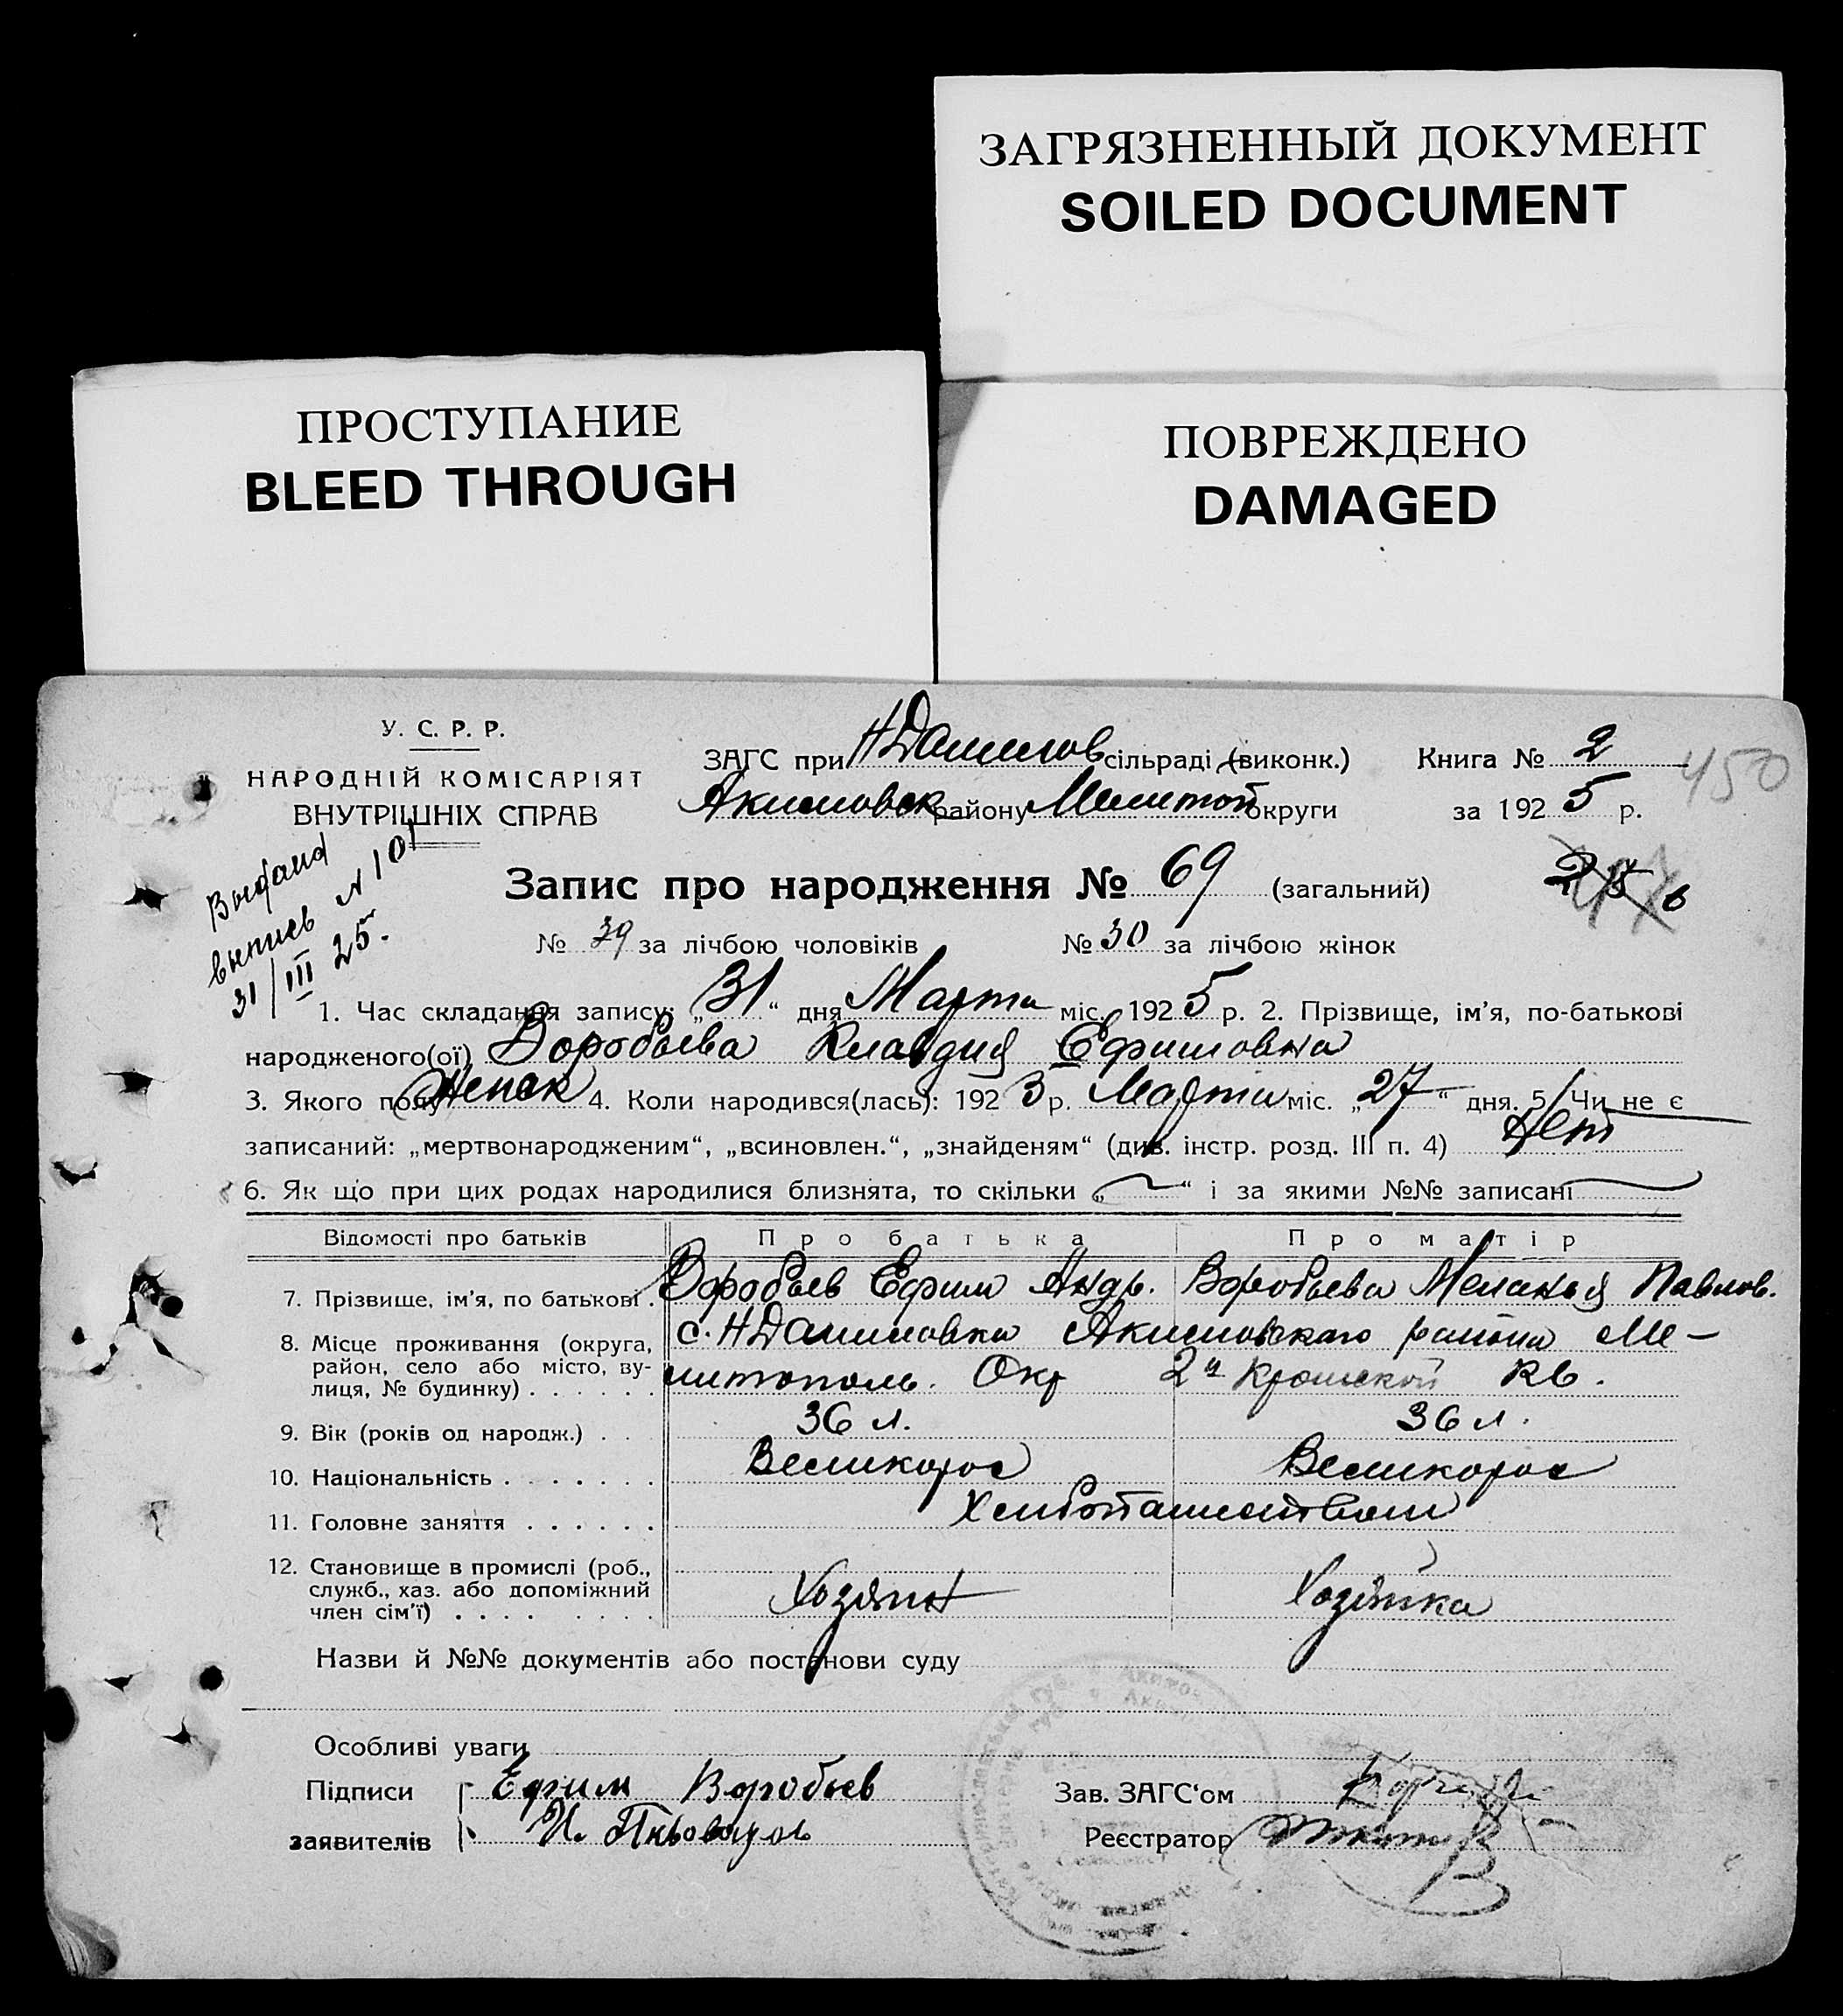 ЗАГРЯЗНЕННЫЙ ДОКУМЕНТ
SOILED DOCUMENT
ПРОСТУПАНИЕ
BLEED THROUGH
ПОВРЕЖДЕНО
DAMAGED
У. С. Р. Р.
НАРОДНІЙ КОМІСАРІЯТ
ВНУТРІШНІХ СПРАВ
ЗАГС при НДанилов сільраді (виконк.) Книга № 2
450
Акимовск району Мелитоп округи за 1925 р.
Выдана
выпись № 101
31/III 25.
Запис про народження № 69 (загальний)
№ 39 за лічбою чоловіків № 30 за лічбою жінок
1. Час складання запису: „31“ дня Марта міс. 1925 р. 2. Прізвище, ім'я, по-батькові
народженого(ої) Воробьева Клавдия Ефимовна
3. Якого полу Женск 4. Коли народився(лась): 1923 р. Марта міс. „27“ дня. 5. Чи не є
записаний: „мертвонародженим“, „всиновлен.“, „знайденям“ (див. інстр. розд. III п. 4) Нет
6. Як що при цих родах народилися близнята, то скільки „ “ і за якими №№ записані
Відомості про батьків Про батька Про матір
7. Прізвище, ім'я, по батькові . Воробьев Ефим Андр. Воробьева Меланья Павлов.
8. Місце проживання (округа, район, село або місто, вулиця, № будинку) . . . . . . с. НДаниловка Акимовскаго района Ме-
литополь. Окр 2й Кв.
9. Вік (років од народж.) . . 36 л. 36 л.
10. Національність . . . . . . . Великорос Великорос
11. Головне заняття . . . . . . Хлебопашеством
12. Становище в промислі (роб., служб., хаз. або допоміжний член сім'ї) . . . . . . . . Хозяин Хозяйка
Назви й №№ документів або постанови суду
Особливі уваги
Підписи Ефим Воробьев Зав. ЗАГС'ом
заявителів И. Реєстратор